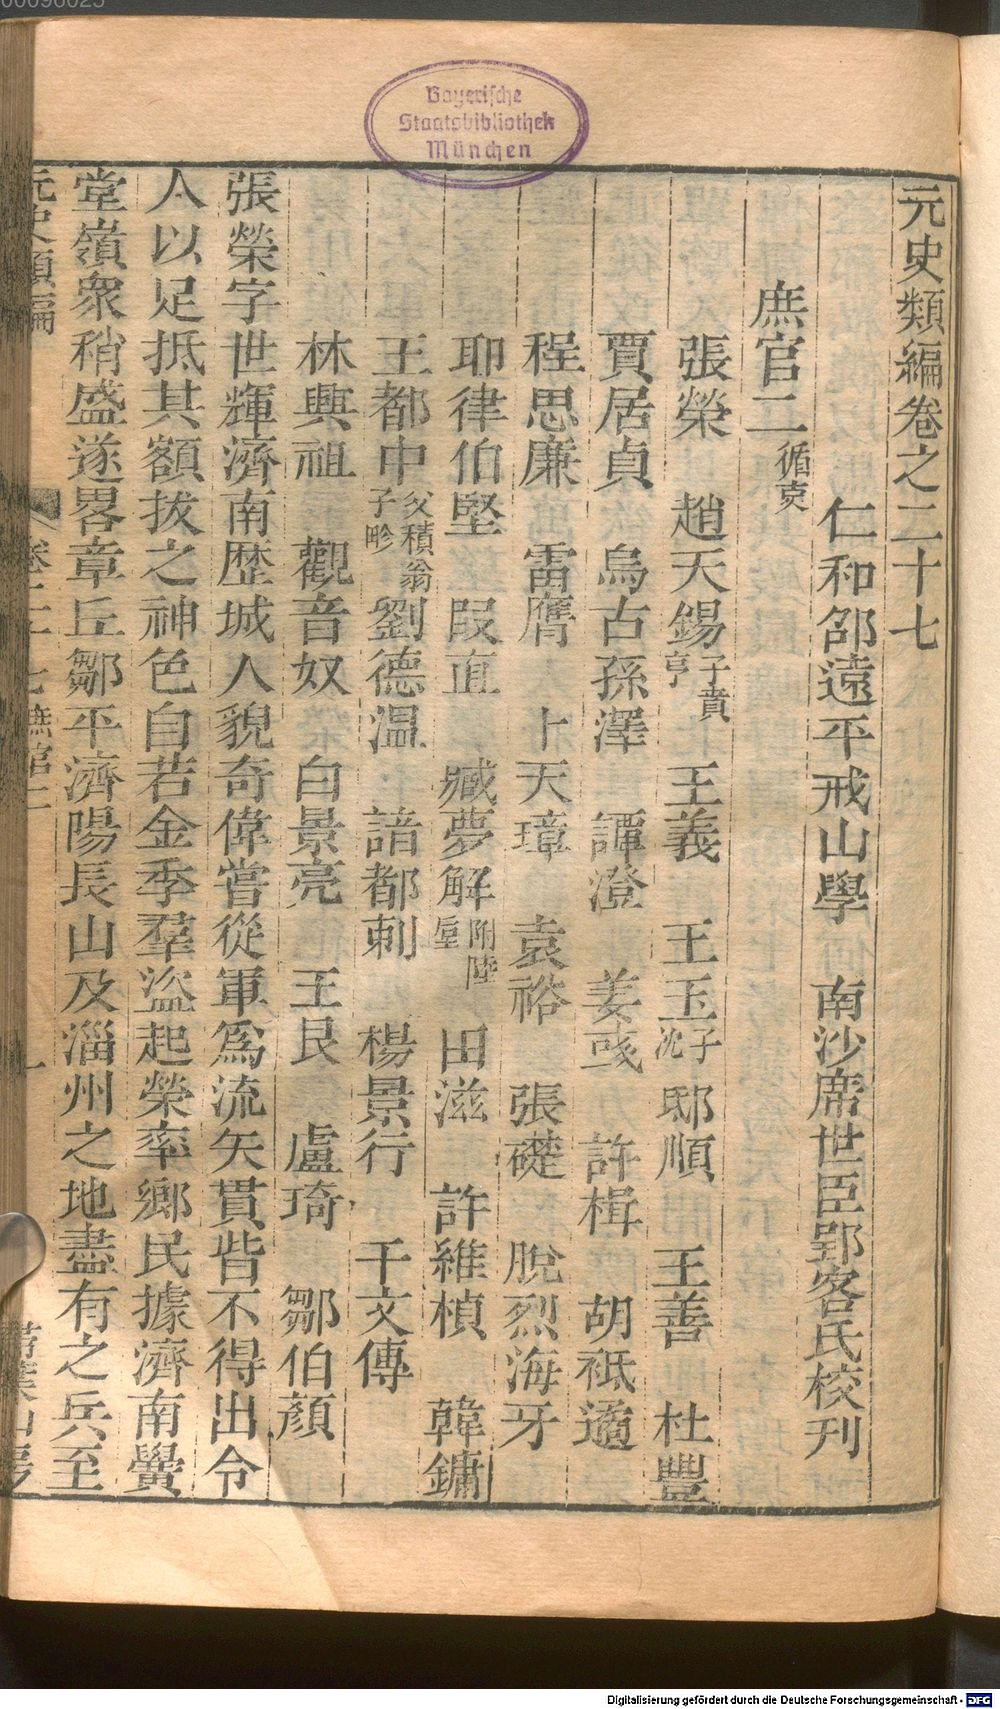 Bayerische
Staatsbibliothek
München
元史類編卷之二十七
仁和邵遠平戒山學　南沙席世臣郢客氏校刊
庶官二循吏
張榮　趙天錫子賁亨　王義　王玉子忱　邸順　王善　杜豐
賈居貞　烏古孫澤　譚澄　姜彧　許楫　胡祗遹
程思廉　雷膺　卜天璋　袁裕　張礎　脫烈海牙
耶律伯堅　段直　臧夢解附陸垕　田滋　許維楨　韓鏞
王都中父積翁子畛　劉德温　諳都剌　楊景行　干文傳
林興祖　觀音奴　白景亮　王艮　盧琦　鄒伯顏
張榮字世輝濟南歷城人貌奇偉嘗從軍爲流矢貫眥不得出令
人以足抵其額拔之神色自若金季羣盜起榮率鄉民據濟南黌
堂嶺衆稍盛遂畧章丘鄒平濟陽長山及淄州之地盡有之兵至
元史類編　卷二十七 庶官二　一　掃葉山房
Digitalisierung gefördert durch die Deutsche Forschungsgemeinschaft - DFG